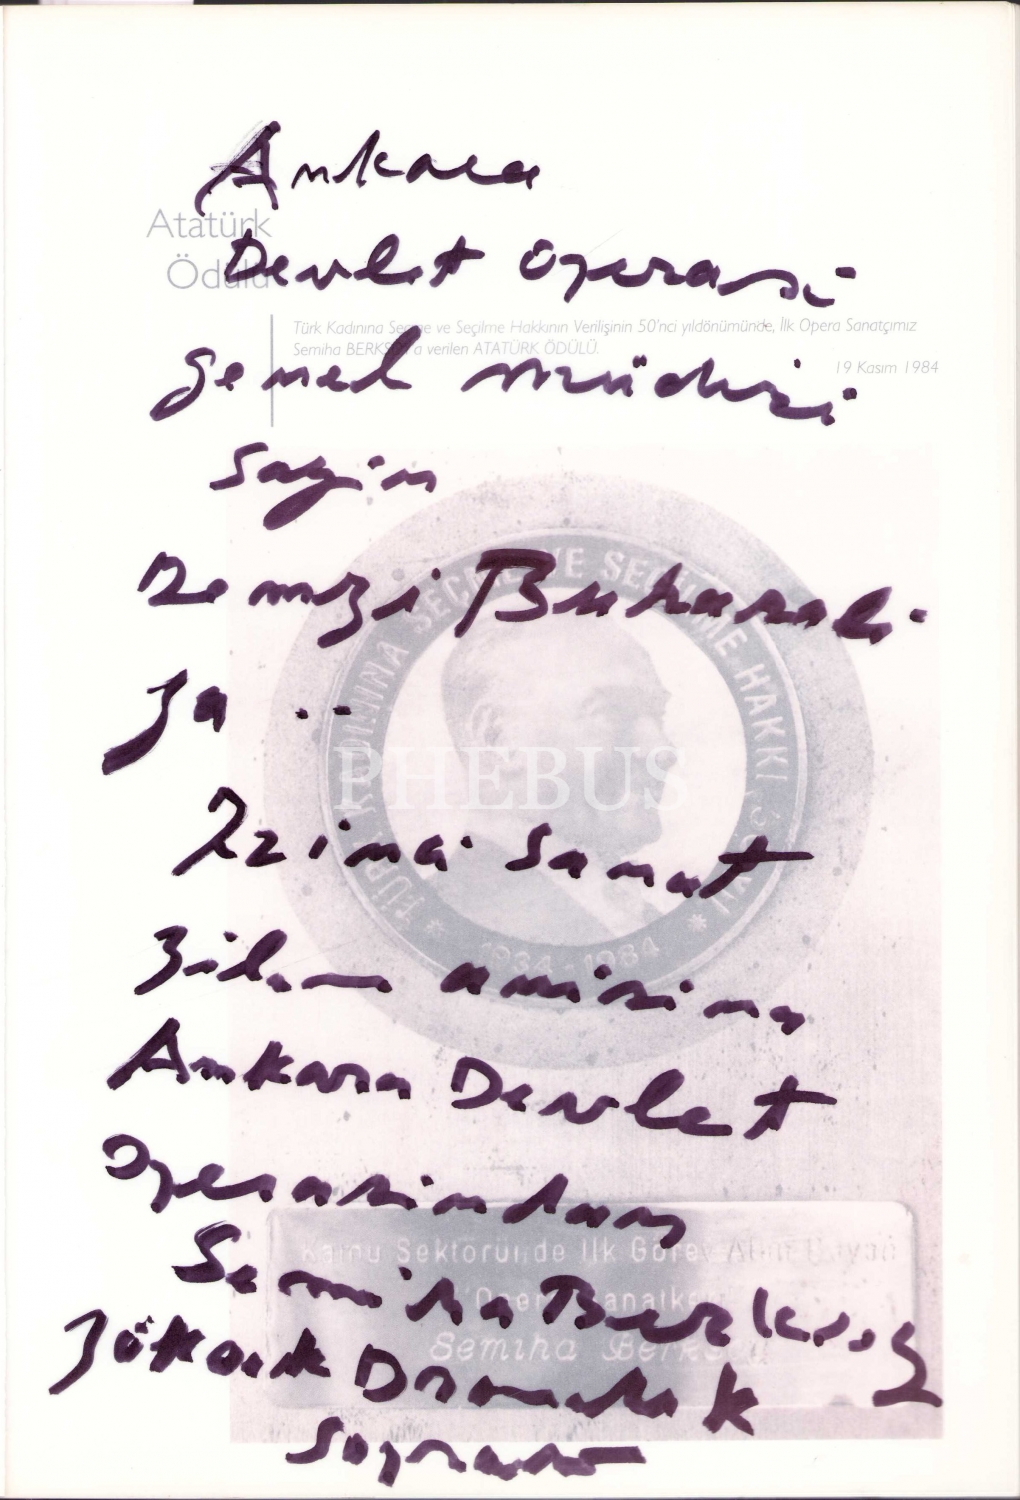 Ankara
Atatürk
Ödülü
Devlet Operasi
Türk Kadınına Seçme ve Seçilme Hakkının Verilişinin 50'nci yıldönümünde, İlk Opera Sanatçımız
Semiha BERKSOY'a verilen ATATÜRK ÖDÜLÜ.
19 Kasım 1984
genel müdürü
Sayin
Remzi Buharalı
ya ...
TÜRK KADININA SEÇME VE SEÇİLME HAKKI 50. YILI
PHEBUS
sanat
1934-1984
anisina
Ankara Devlet
Operasindan
Kamu Sektöründe İlk Görev Alan Bayan
Opera Sanatkarı
Semiha Berksoy
Semiha Berksoy
Dramatik
Soprano